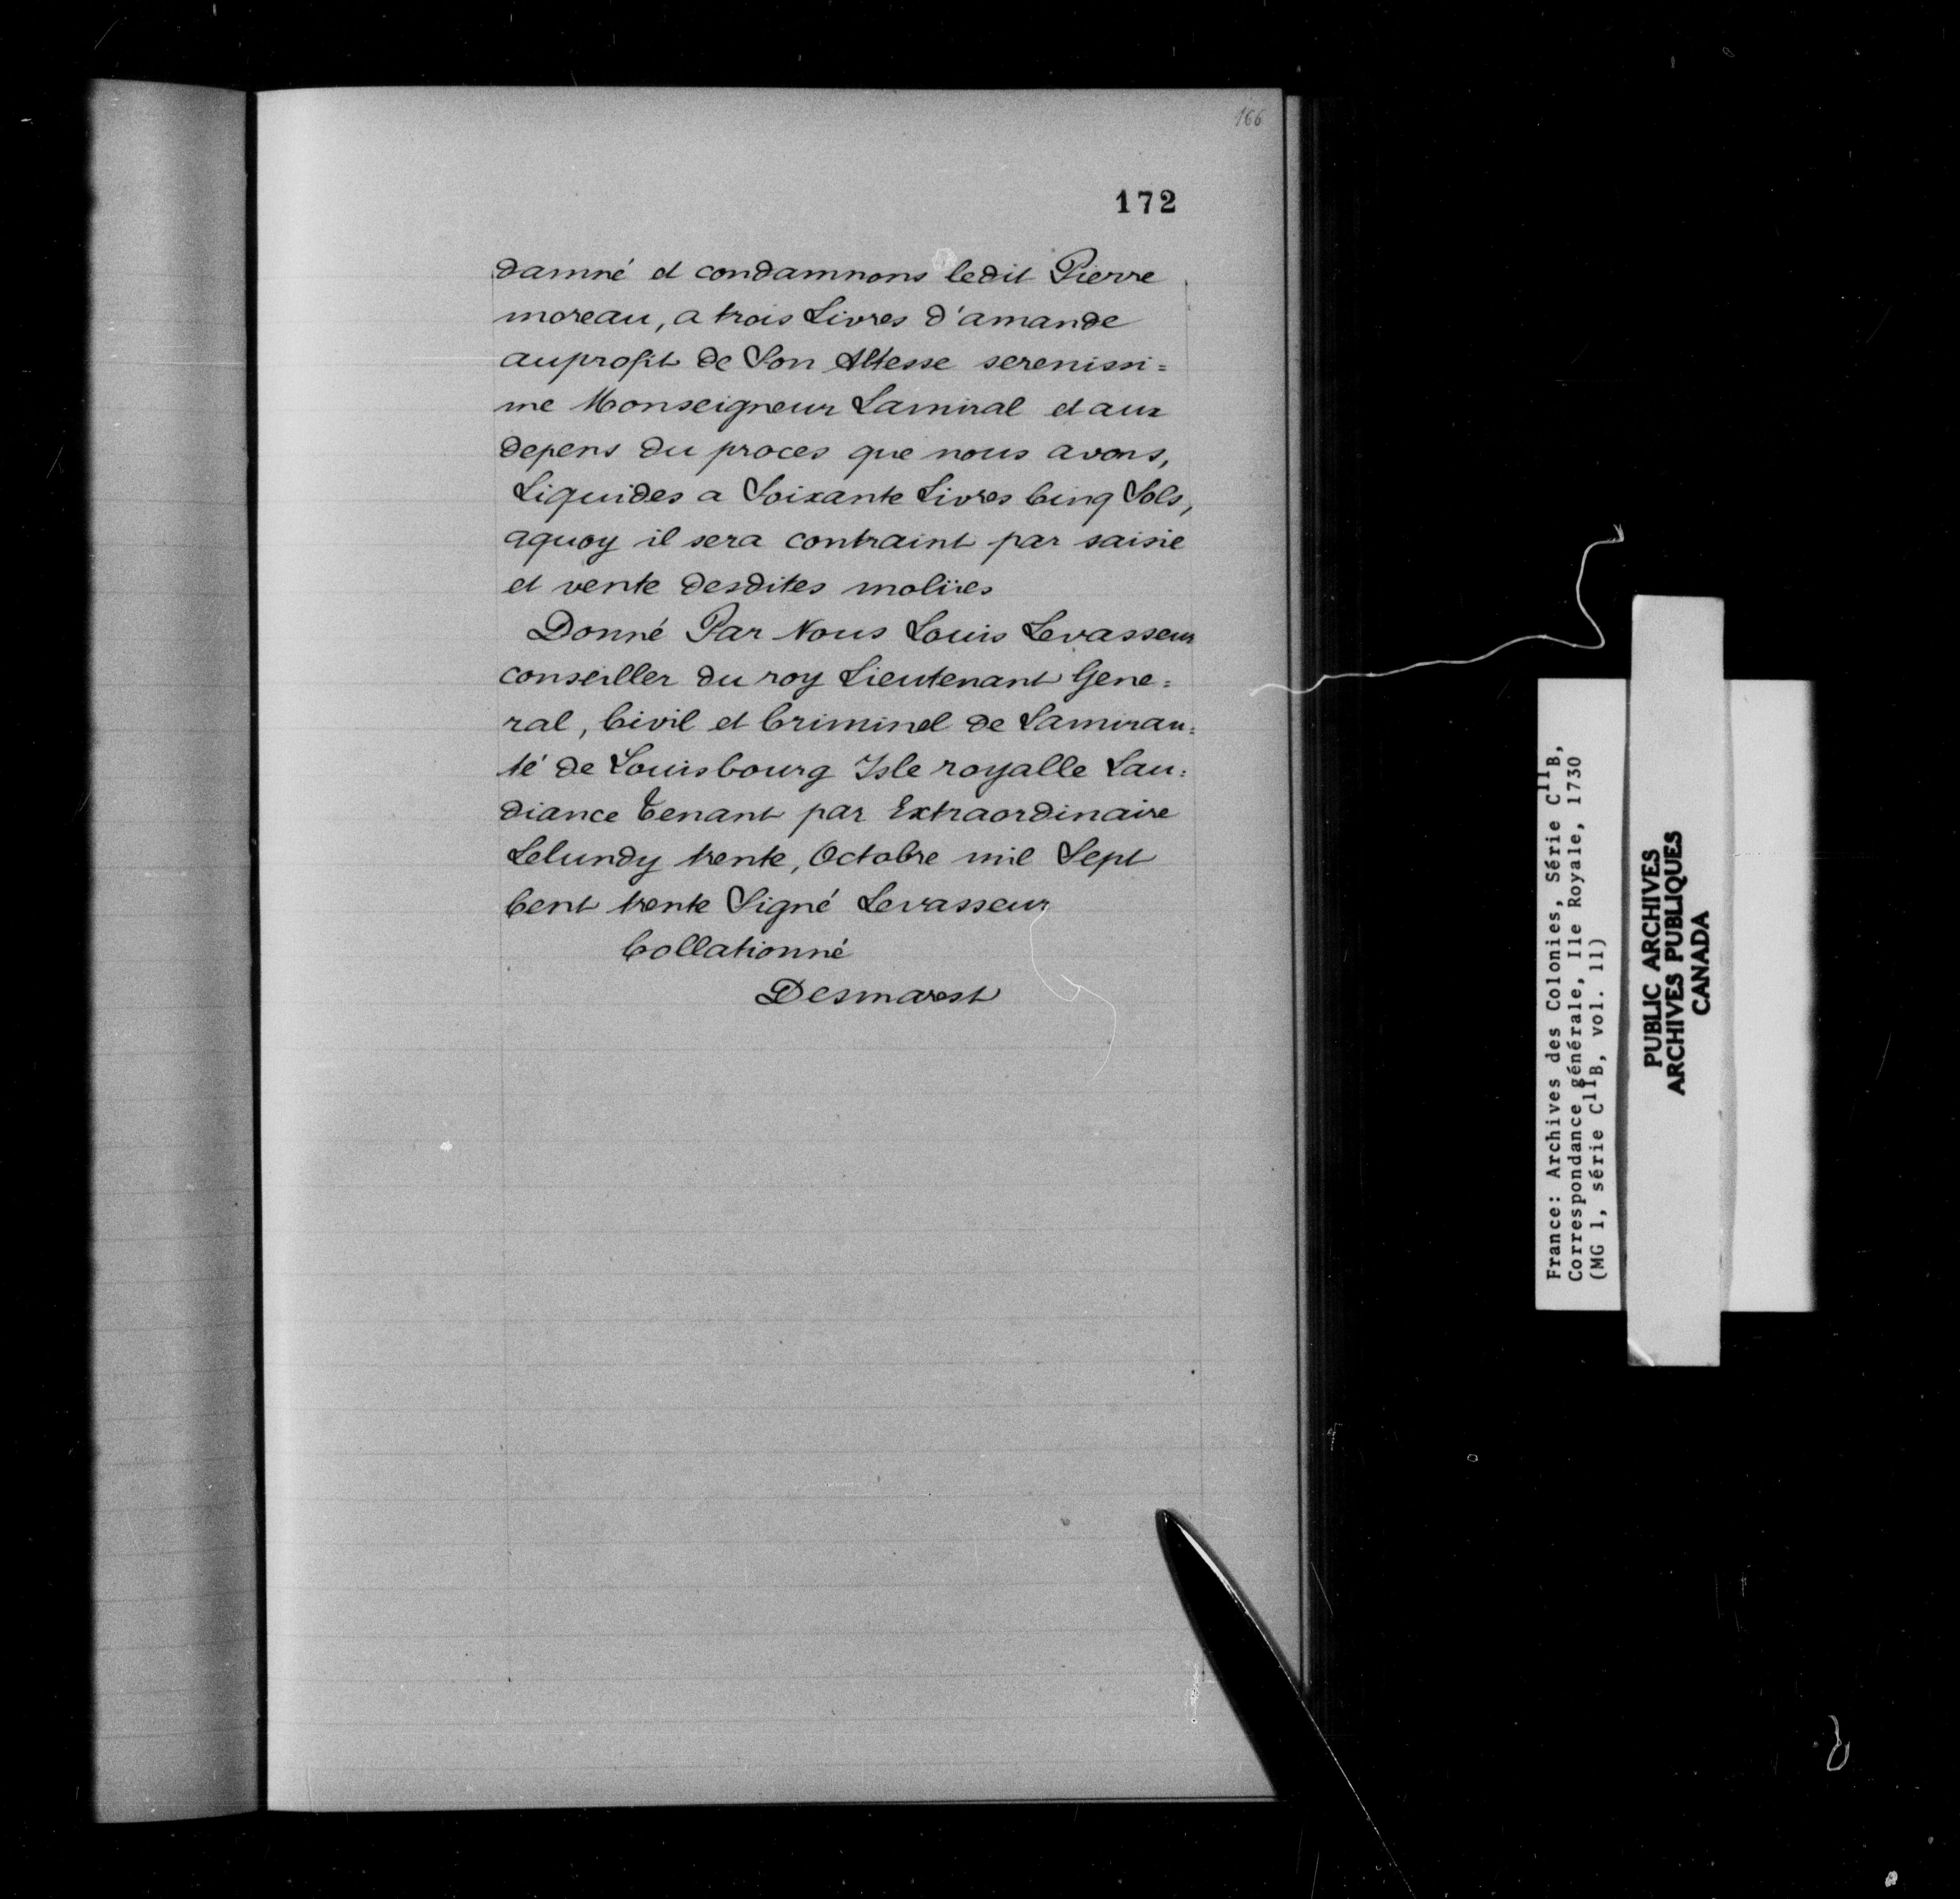 166
172
damné et condamnons ledit Pierre
moreau, a trois Livres d'amande
auprofit de Son Altesse serenissi=
me Monseigneur Lamiral et aux
depens du proces que nous avons,
Liquides a Soixante Livres Cinq Sols,
aquoy il sera contraint par saisie
et vente desdites molües
Donné Par Nous Louis Levasseur
conseiller du roy Lieutenant Gene=
ral, Civil et Criminel de Lamirau=
té de Louisbourg Isle royalle Lau=
diance Tenant par Extraordinaire
Lelundy trente, Octobre mil Sept
Cent trente Signé Levasseur
Collationné
Desmarest
France: Archives des Colonies, Série C11B,
Correspondance générale, Ile Royale, 1730
(MG 1, série C11B, vol. 11)
PUBLIC ARCHIVES
ARCHIVES PUBLIQUES
CANADA